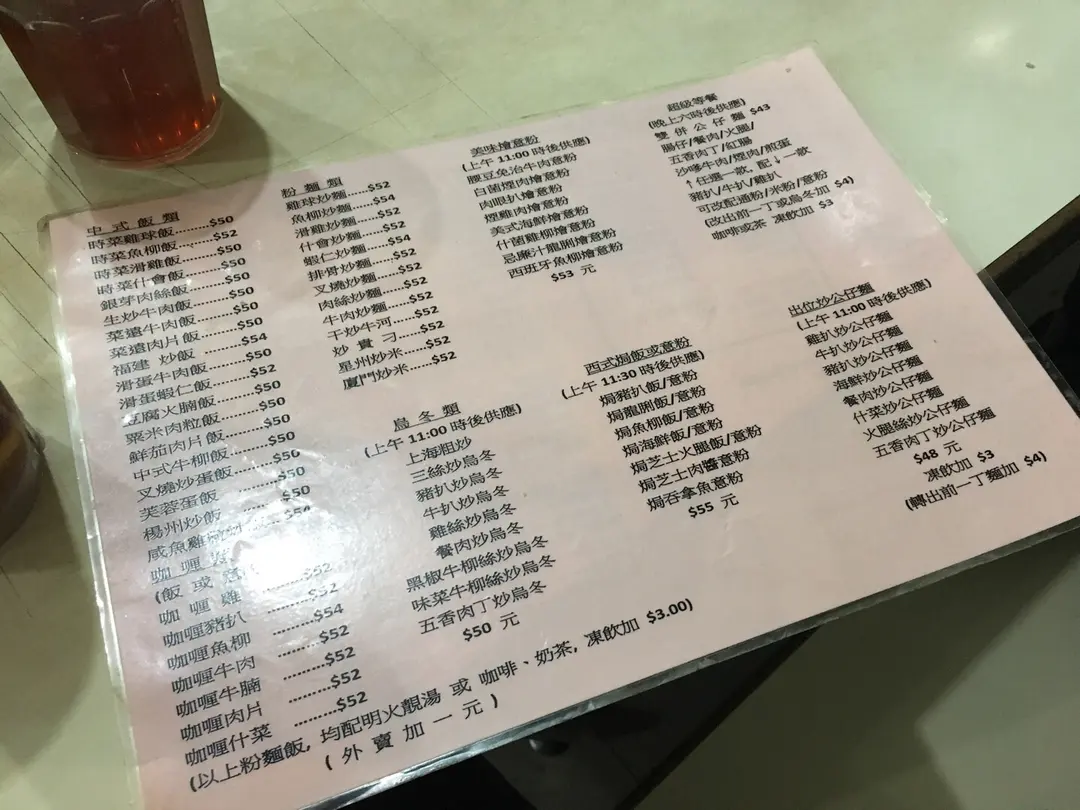 中式飯類
時菜雞球飯......$50
時菜魚柳飯......$52
時菜滑雞飯......$50
時菜什會飯......$50
銀芽肉絲飯......$50
生炒牛肉飯......$50
菜遠牛肉飯......$50
菜遠肉片飯......$50
福建炒飯......$54
滑蛋牛肉飯......$50
滑蛋蝦仁飯......$52
豆腐火腩飯......$50
粟米肉粒飯......$50
鮮茄肉片飯......$50
中式牛柳飯......$50
叉燒炒蛋飯......$50
芙蓉蛋飯......$50
楊州炒飯......$50
咸魚雞......$54
咖喱
(飯或意
咖喱雞......$52
咖喱豬扒......$52
咖喱魚柳......$54
咖喱牛肉......$52
咖喱牛腩......$52
咖喱肉片......$52
咖喱什菜......$52
粉麵類
雞球炒麵......$52
魚柳炒麵......$54
滑雞炒麵......$52
什會炒麵......$52
蝦仁炒麵......$54
排骨炒麵......$52
叉燒炒麵......$52
肉絲炒麵......$52
牛肉炒麵......$52
干炒牛河......$52
炒貴刁......$52
星州炒米......$52
廈門炒米......$52
烏冬類
(上午 11:00 時後供應)
上海粗炒
三絲炒烏冬
豬扒炒烏冬
牛扒炒烏冬
雞絲炒烏冬
餐肉炒烏冬
黑椒牛柳絲炒烏冬
味菜牛柳絲炒烏冬
五香肉丁炒烏冬
$50 元
美味燴意粉
(上午 11:00 時後供應)
腰豆免治牛肉意粉
白菌煙肉燴意粉
肉眼扒燴意粉
煙雞肉燴意粉
美式海鮮燴意粉
什菌雞柳燴意粉
忌廉汁龍脷燴意粉
西班牙魚柳燴意粉
$53 元
西式焗飯或意粉
(上午 11:30 時後供應)
焗豬扒飯/意粉
焗龍脷飯/意粉
焗魚柳飯/意粉
焗海鮮飯/意粉
焗芝士火腿飯/意粉
焗芝士肉醬意粉
焗吞拿魚意粉
$55 元
超級等餐
(晚上六時後供應)
雙併公仔麵 $43
腸仔/餐肉/火腿/
五香肉丁/紅腸
沙嗲牛肉/煙肉/煎蛋
↑任選一款,配↓一款
豬扒/牛扒/雞扒
可改配通粉/米粉/意粉
(改出前一丁或烏冬加 $4)
咖啡或茶 凍飲加 $3
出位炒公仔麵
(上午 11:00 時後供應)
雞扒炒公仔麵
牛扒炒公仔麵
豬扒炒公仔麵
海鮮炒公仔麵
餐肉炒公仔麵
什菜炒公仔麵
火腿絲炒公仔麵
五香肉丁炒公仔麵
$48 元
凍飲加 $3
(轉出前一丁麵加 $4)
(以上粉麵飯,均配明火靚湯 或 咖啡、奶茶,凍飲加 $3.00)
(外賣加一元)